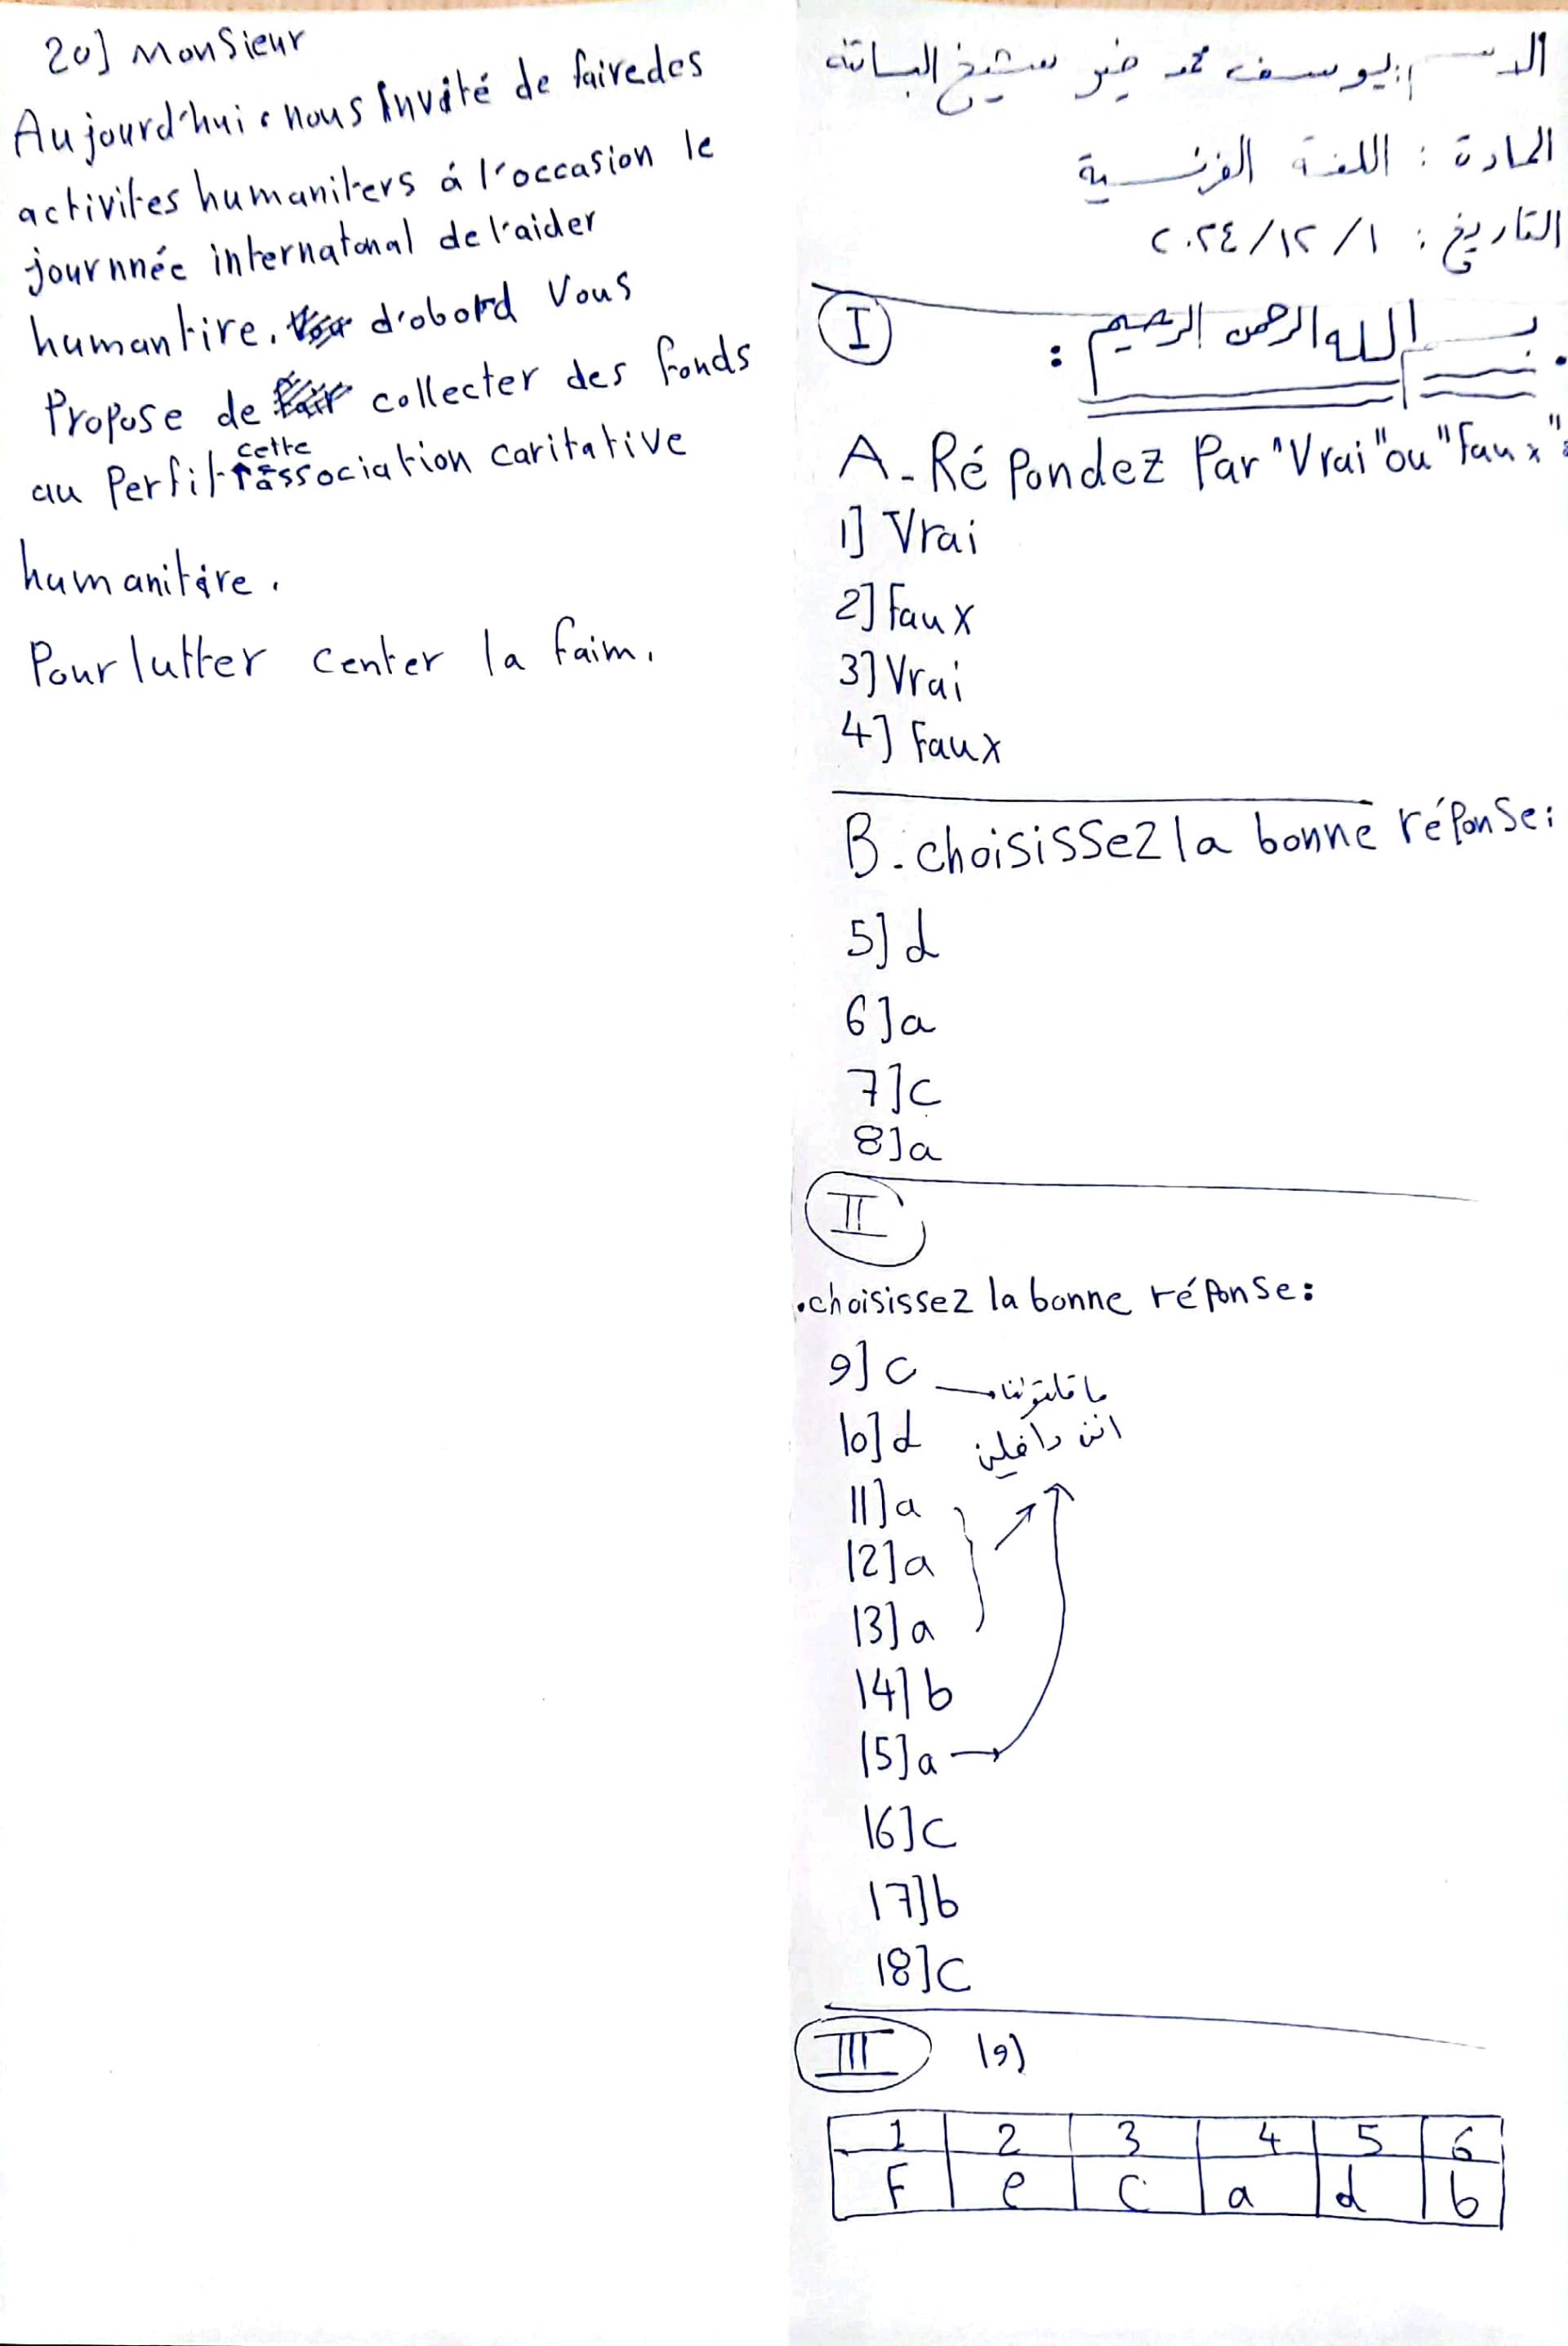 الاسم: يوسف محمد خير شيخ البساتنة
المادة: اللغة الفرنسية
التاريخ: ١/١٢/٢٠٢٤
I
بسم الله الرحمن الرحيم:
A-Répondez Par "Vrai" ou "Faux":
1] Vrai
2] Faux
3] Vrai
4] Faux
B-choisissez la bonne réponse:
5] d
6] a
7] c
8] a
II
.choisissez la bonne réponse:
9] c
10] d
11] a
12] a
13] a
14] b
15] a
16] c
17] b
18] c
III 19)
1 2 3 4 5 6
F e c a d b
20] Monsieur
Aujourd'hui, nous Invité de faire des
activites humaniters á l'occasion le
journnée internatonal de l'aider
humantire. d'obord Vous
Propose de collecter des fonds
au Perfit cette association caritative
humanitére.
Pour lutter center la faim.